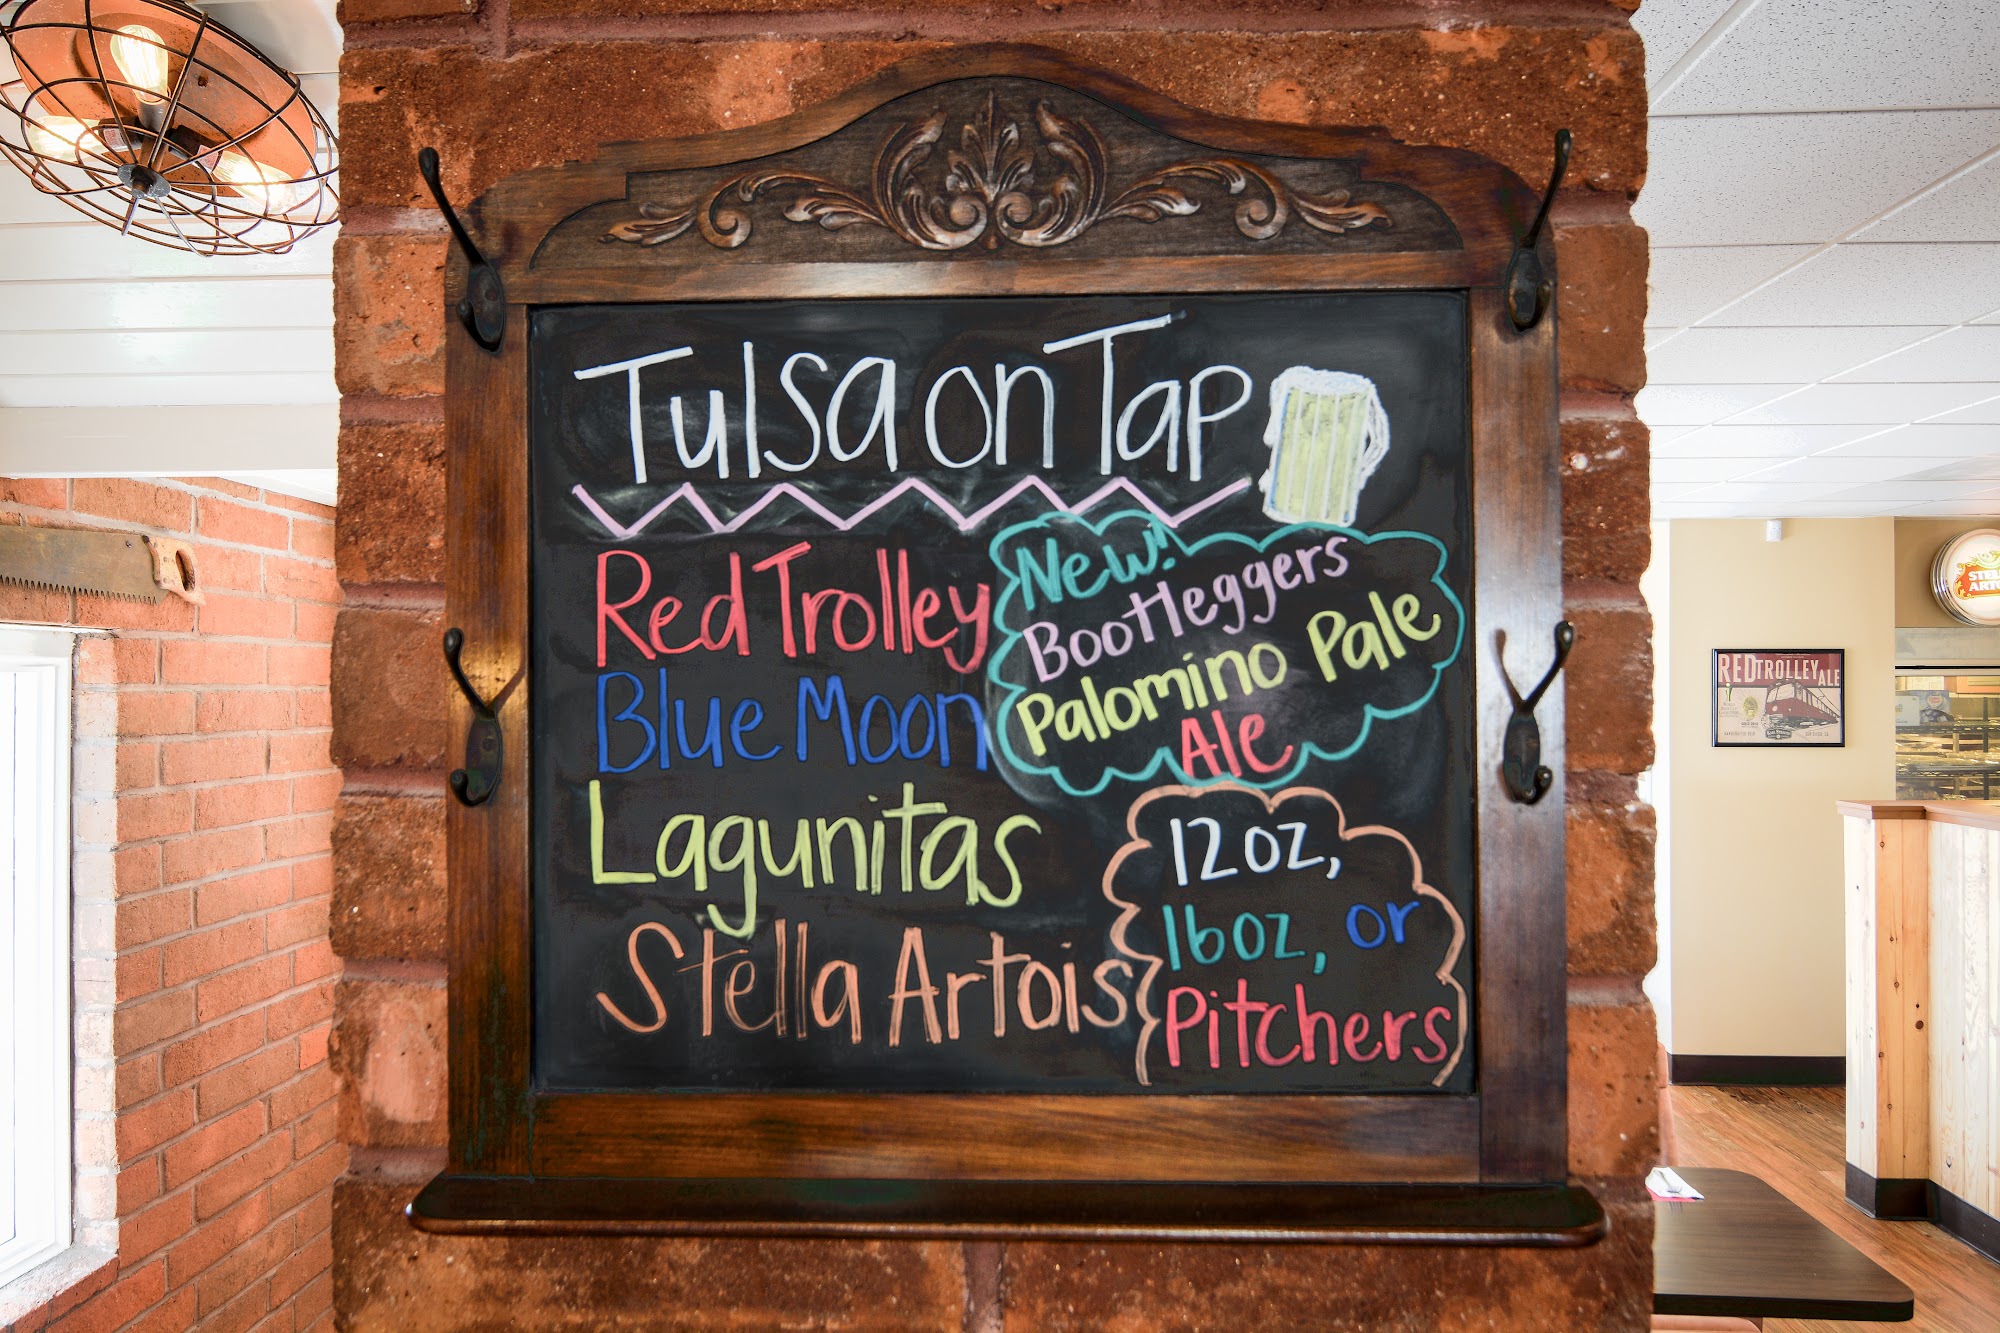 Tulsa on Tap
Red Trolley
Blue Moon
Lagunitas
Stella Artois
New!
Bootleggers
Palomino Pale
Ale
12oz,
16oz, or
Pitchers
RED TROLLEY ALE